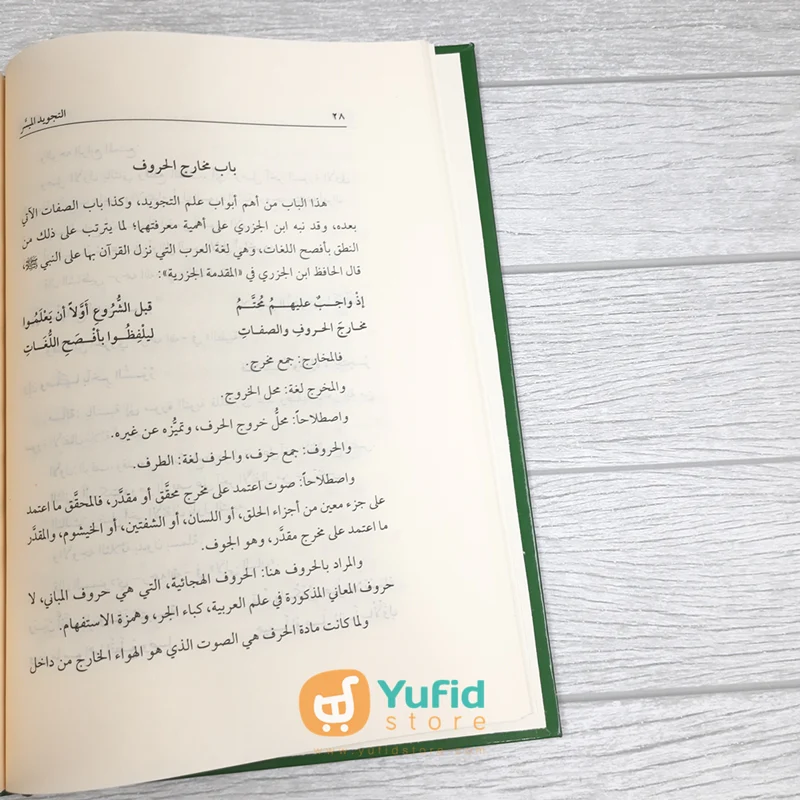 ٢٨ التجويد الميسَّر
باب مخارج الحروف
هذا الباب من أهم أبواب علم التجويد، وكذا باب الصفات الآتي
بعده، وقد نبه ابن الجزري على أهمية معرفتهما؛ لما يترتب على ذلك من
النطق بأفصح اللغات، وهي لغة العرب التي نزل القرآن بها على النبي ﷺ،
قال الحافظ ابن الجزري في «المقدمة الجزرية»:
إذْ واجـبٌ عليهـمُ مُحَتَّـمُ قبل الشُّرُوعِ أوَّلاً أن يَعْلَمُوا
مخارجَ الحـروفِ والصفـاتِ ليلْفِظُـوا بأفْـصَحِ اللُّغَـاتِ
فالمخارج: جمع مخرج.
والمخرج لغة: محل الخروج.
واصطلاحاً: محلُّ خروج الحرف، وتميُّزه عن غيره.
والحروف: جمع حرف، والحرف لغة: الطرف.
واصطلاحاً: صوت اعتمد على مخرج محقَّق أو مقدَّر، فالمحقَّق ما اعتمد
على جزء معين من أجزاء الحلق، أو اللسان، أو الشفتين، أو الخيشوم، والمقدَّر
ما اعتمد على مخرج مقدَّر، وهو الجوف.
والمراد بالحروف هنا: الحروف الهجائية، التي هي حروف المباني، لا
حروف المعاني المذكورة في علم العربية، كباء الجر، وهمزة الاستفهام.
ولما كانت مادة الحرف هي الصوت الذي هو الهواء الخارج من داخل
Yufid
store
www.yufidstore.com